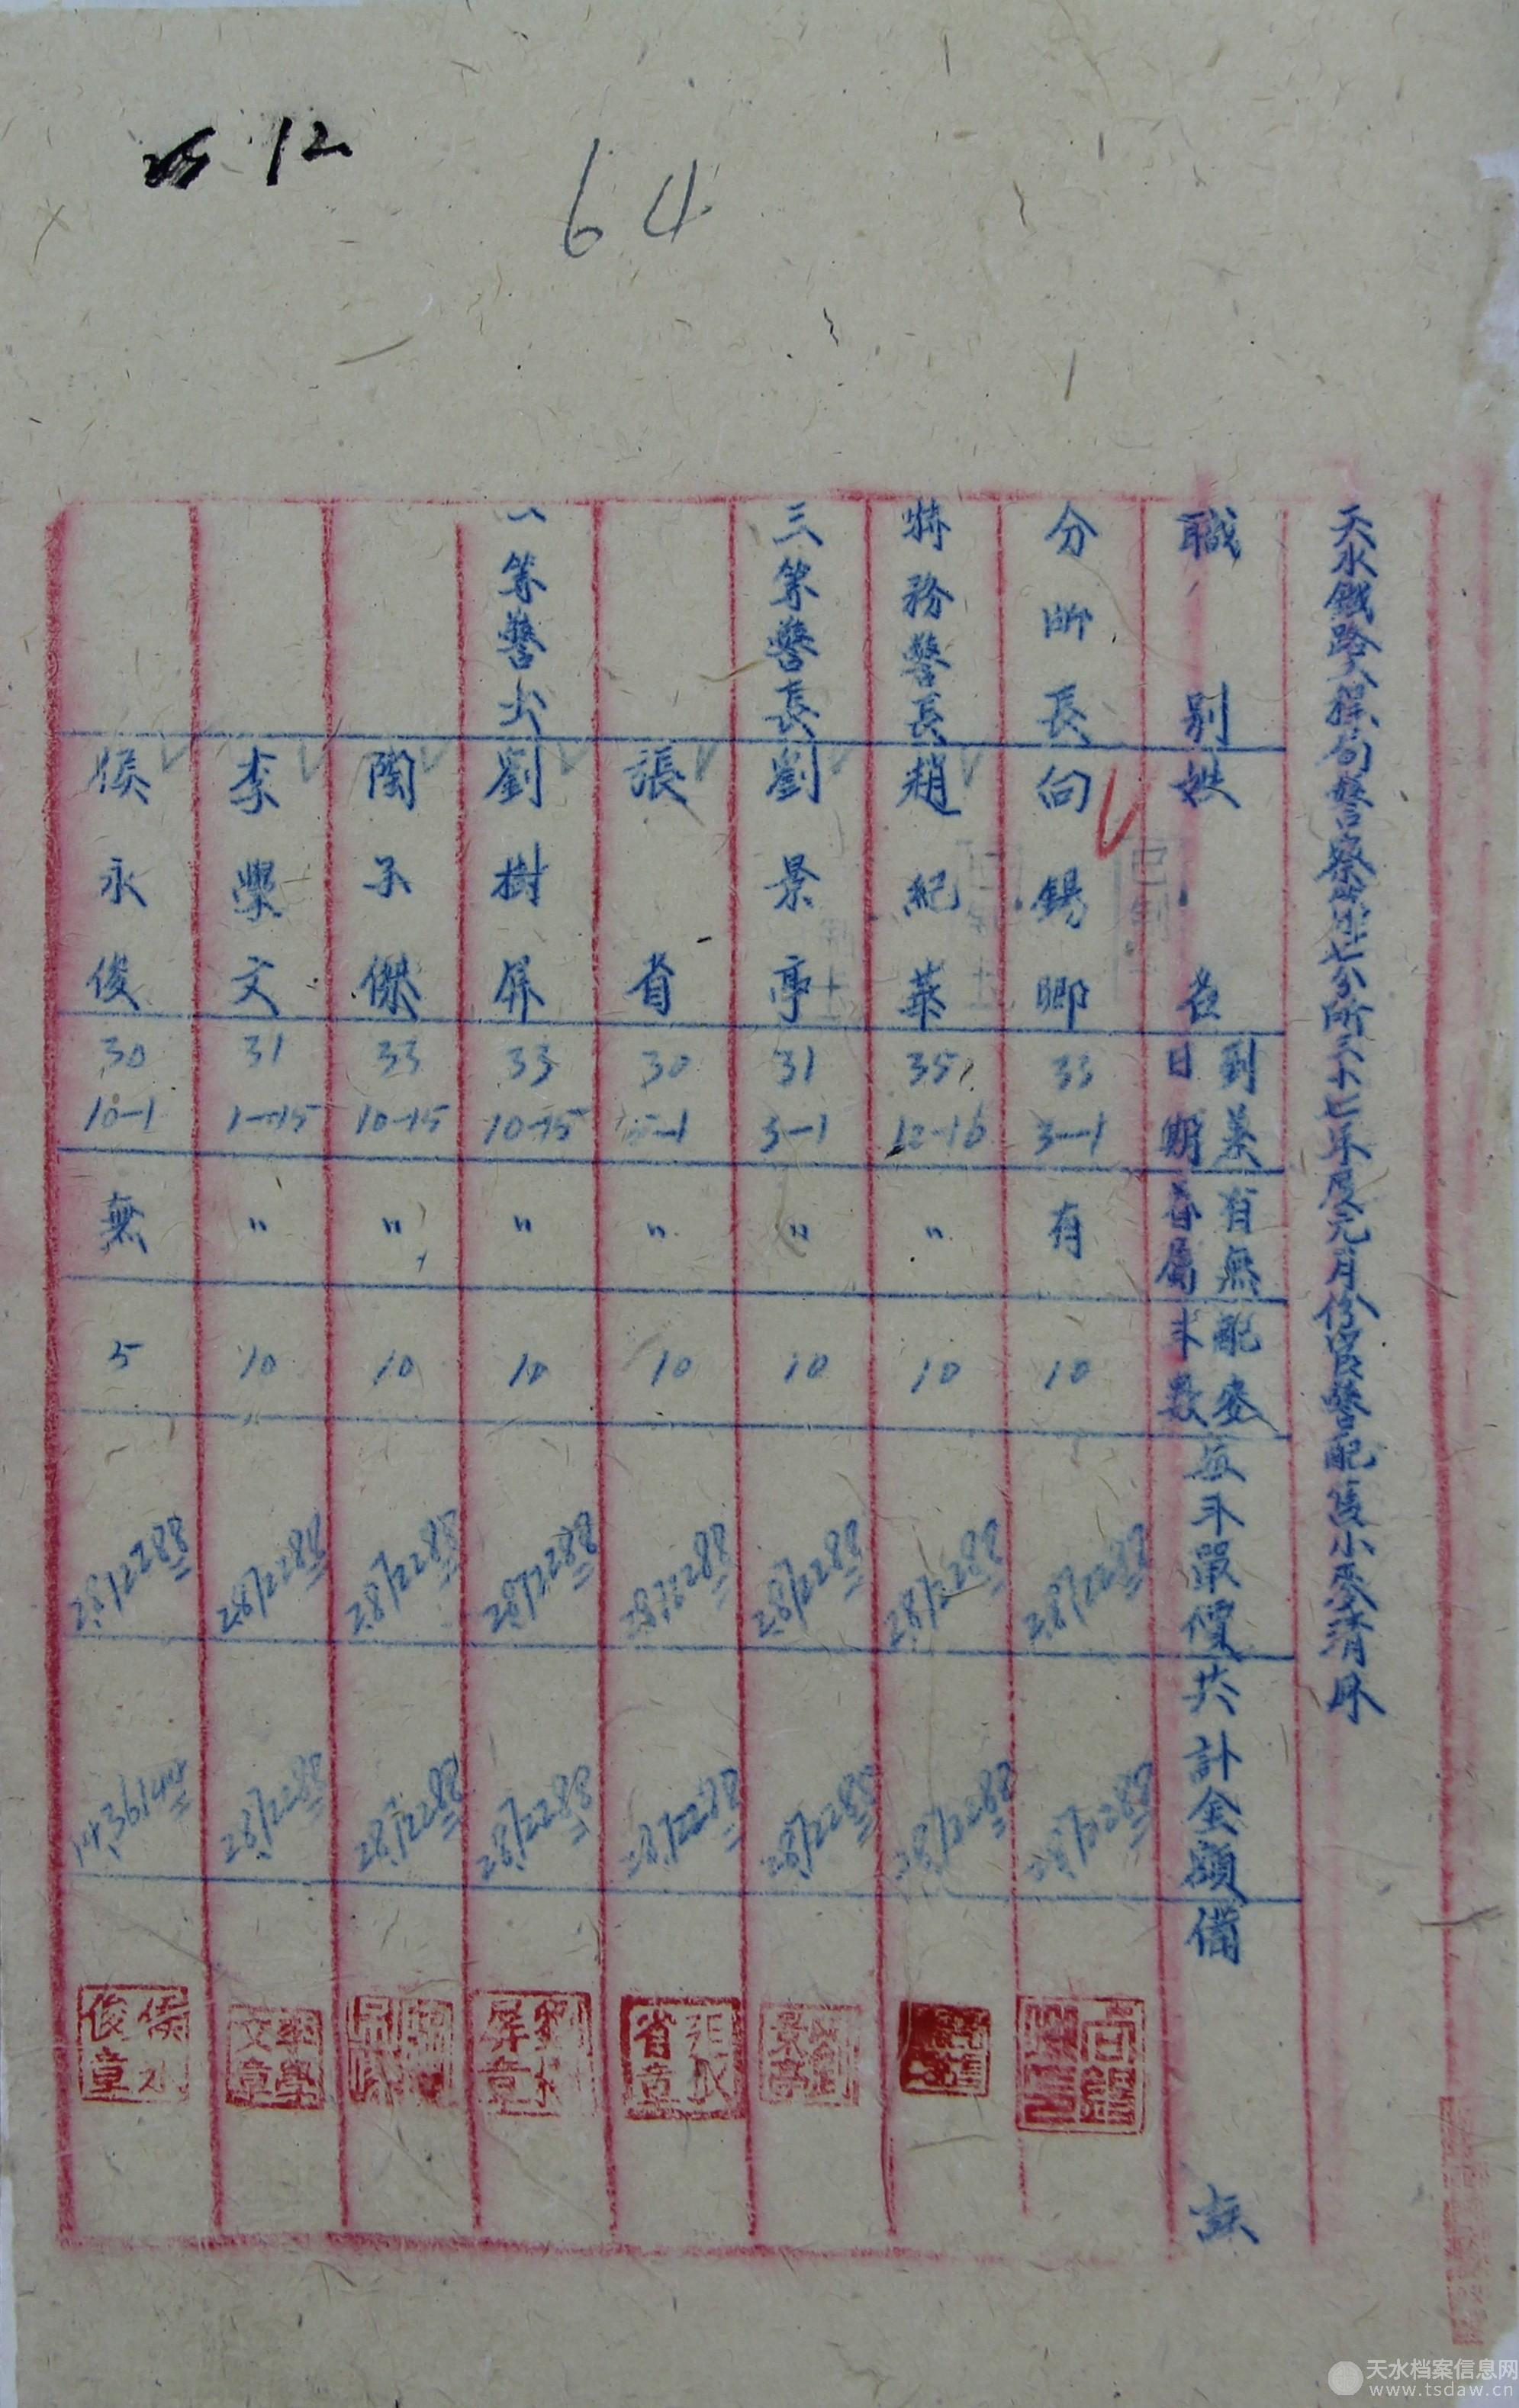 12
64
天水鐵路工程局警察第七分所三十七年度元月份官警配售小麥清冊
職別 姓名 到差日期 有無眷屬 配麥斗數 每斗單價 共計金額 備註
分所長 向錫卿 33 3-1 有 10 2,872288 28,72288
特務警長 趙紀華 35 12-16 〃 10 2,872288 28,72288
三等警長 劉景亭 31 3-1 〃 10 2,872288 28,72288 劉景亭
張省 30 5-1 〃 10 2,872288 28,72288 張省章
一等警士 劉樹屏 33 10-15 〃 10 2,872288 28,72288 劉樹屏章
陶子傑 33 10-15 〃 10 2,872288 28,72288
李學文 31 1-15 〃 10 2,872288 28,72288 李學文章
侯永俊 30 10-1 無 5 2,872288 14,36144 侯永俊章
已到
天水档案信息网
www.tsdaw.cn